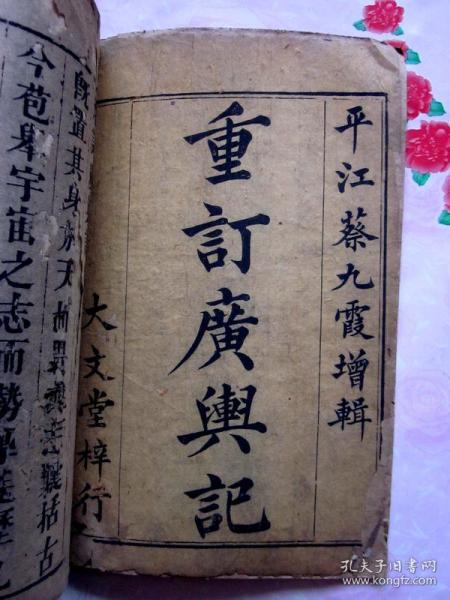 平江蔡九霞增輯
重訂廣輿記
大文堂梓行
既置其身於天
今苞舉宇宙之志而勢
孔夫子旧书网
www.kongfz.com